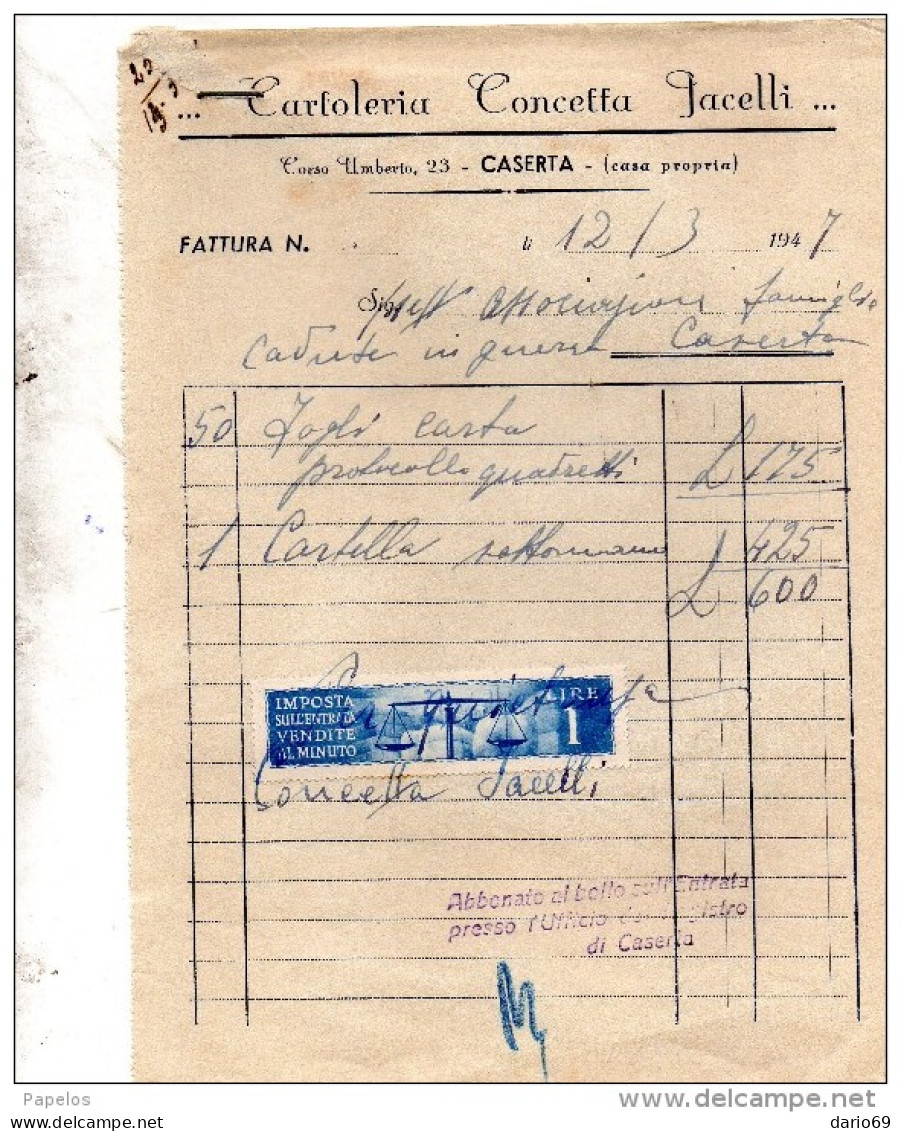 ... Cartoleria Concetta Jacelli ...
Corso Umberto, 23 - CASERTA - (casa propria)
FATTURA N. li 12/3 1947
Associazione famiglie
Cadute in guerra Caserta
50 Fogli carta
protocollo quadretti £ 175
1 Cartella sottomano £ 425
£ 600
Per quietanza
IMPOSTA
SULL'ENTRATA
VENDITE
AL MINUTO
LIRE
1
Concetta Jacelli
Abbonato al bollo sull'Entrata
presso l'Ufficio del Registro
di Caserta
Papelos
delcampe.net
dario69